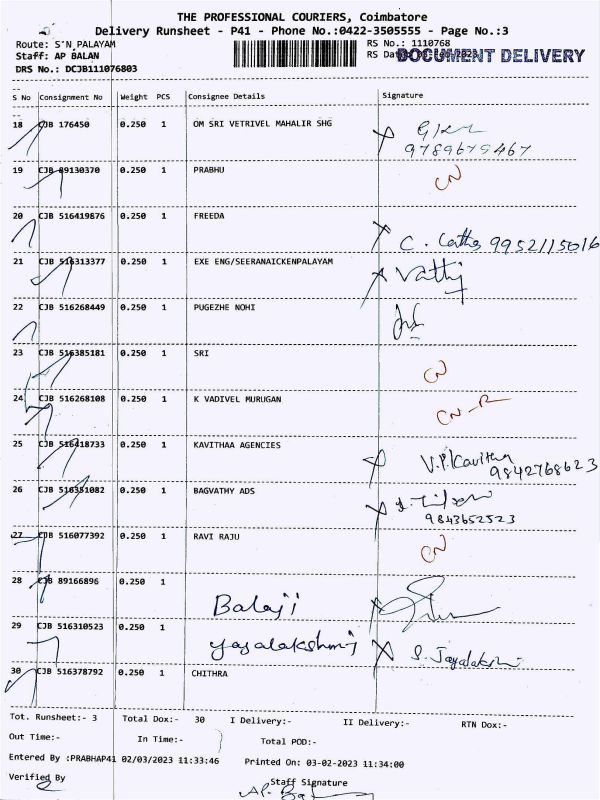 THE PROFESSIONAL COURIERS, Coimbatore
Delivery Runsheet - P41 - Phone No.:0422-3505555 - Page No.:3
Route: S'N PALAYAM
RS No.: 1110768
Staff: AP BALAN
RS Da
DOCUMENT DELIVERY
DRS No.: DCJB111076803
S No Consignment No Weight PCS Consignee Details Signature
18 CJB 176450 0.250 1 OM SRI VETRIVEL MAHALIR SHG
9789675467
19 CJB 89130370 0.250 1 PRABHU CN
20 CJB 516419876 0.250 1 FREEDA
C. 9952115016
21 CJB 516313377 0.250 1 EXE ENG/SEERANAICKENPALAYAM
22 CJB 516268449 0.250 1 PUGEZHE NOHI
23 CJB 516385181 0.250 1 SRI CN
24 CJB 516268108 0.250 1 K VADIVEL MURUGAN CN-R
25 CJB 516418733 0.250 1 KAVITHAA AGENCIES V.P.Kavitha
9842768623
26 CJB 516351082 0.250 1 BAGVATHY ADS
9843652523
27 CJB 516077392 0.250 1 RAVI RAJU CN
28 CJB 89166896 0.250 1 Balaji
29 CJB 516310523 0.250 1 Jayalakshmi S. Jayalakshmi
30 CJB 516378792 0.250 1 CHITHRA
Tot. Runsheet:- 3 Total Dox:- 30 I Delivery:- II Delivery:- RTN Dox:-
Out Time:- In Time:- Total POD:-
Entered By :PRABHAP41 02/03/2023 11:33:46 Printed On: 03-02-2023 11:34:00
Verified By Staff Signature